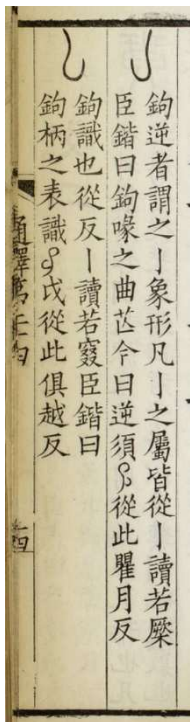 亅
鉤逆者謂之亅象形凡亅之屬皆從亅讀若橜
臣鍇曰鉤喙之曲芒今曰逆須𠄌從此瞿月反
𠄌
鉤識也從反亅讀若窡臣鍇曰
鉤柄之表識𠄌戉從此俱越反
通釋
四